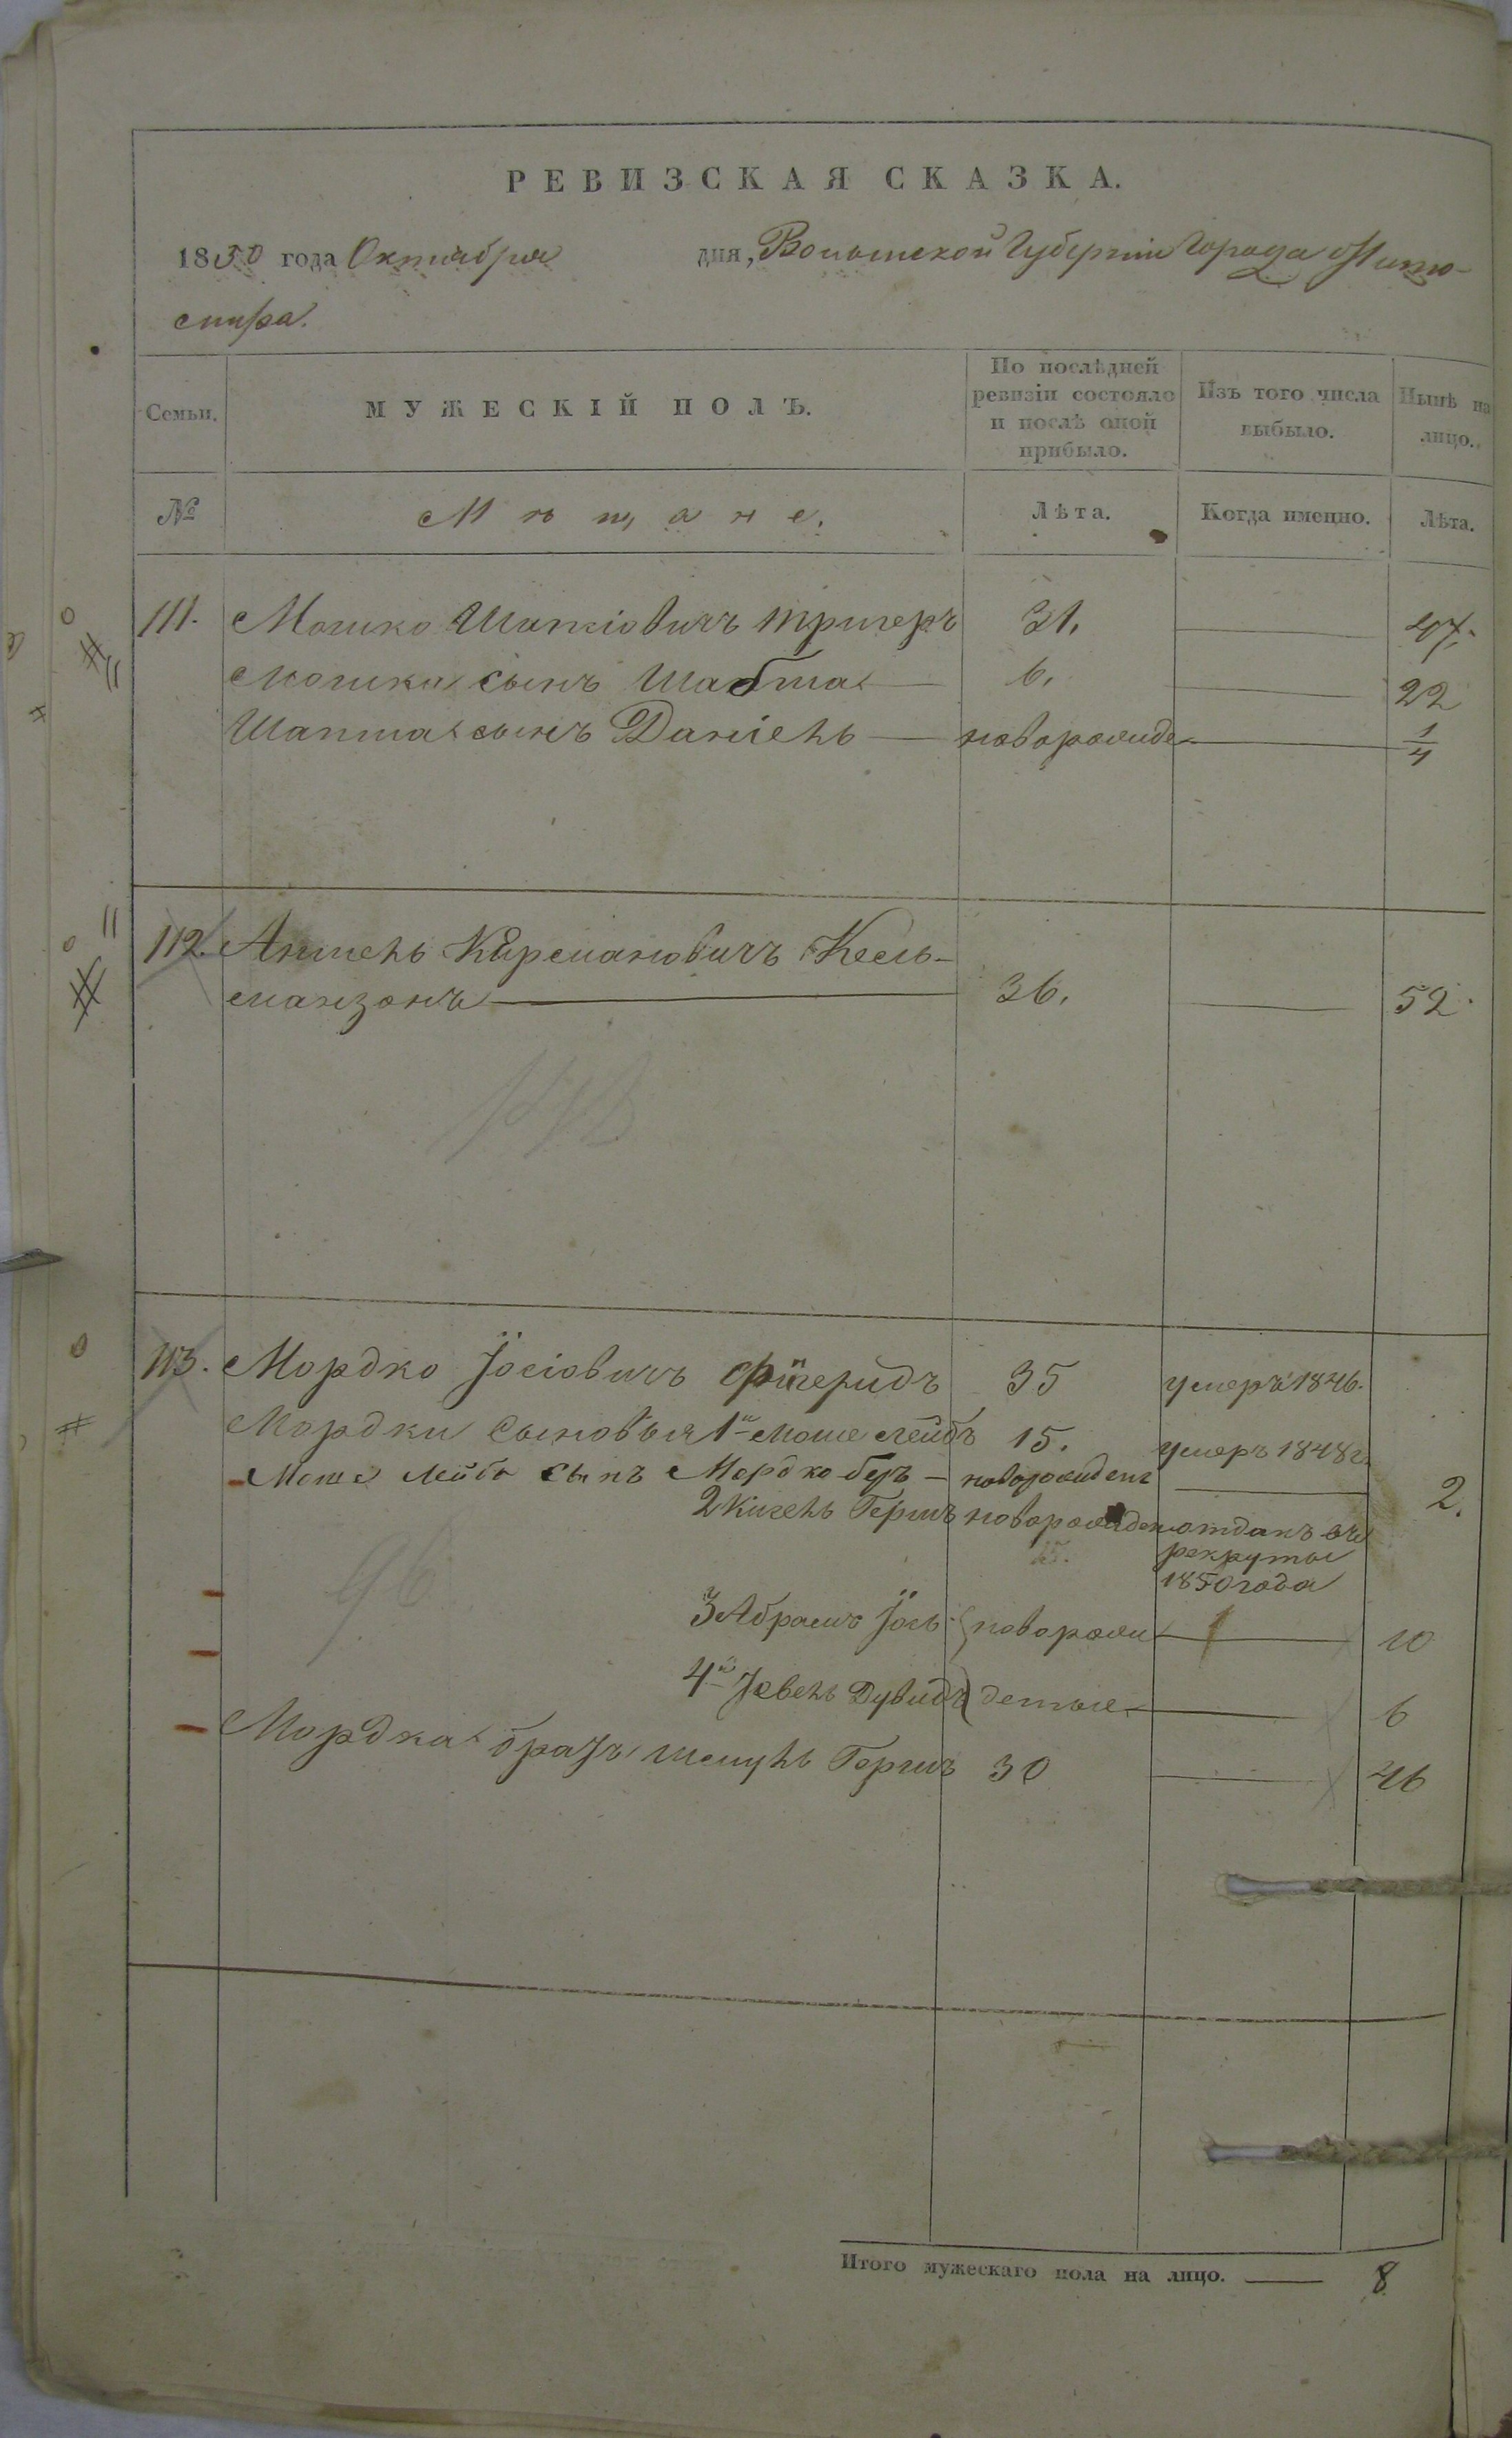 РЕВИЗСКАЯ СКАЗКА.
1850 года Октября дня, Волынской Губерніи Города Жито-
мира.
Семьи. МУЖЕСКІЙ ПОЛЪ. По послѣдней ревизіи состояло и послѣ оной прибыло. Изъ того числа выбыло. Нынѣ на лицо.
№ Мѣщане. Лѣта. Когда именно. Лѣта.
111. Мошко Шапсіовичъ Тригеръ 31. 47.
Мошка сынъ Шабта 6. 22
Шапша сынъ Даніель новорожде 1/4
112. Аншель Кѣрмановичъ Кесль-
манзонъ 36. 52.
113. Мордко Іосіовичъ 35 умеръ 1846.
Мордки сыновья 1й Моше Лейбъ 15. умеръ 1848г.
Моше Лейба сынъ Мордко Беръ новорожденъ 2.
2 Кигель Гершъ новорожден отданъ въ
рекруты
15. 1850 года
3й Абрамъ Іось новорож 10
4й Дувидъ денные 6
Мордка братъ Шмуль Гершъ 30 46
96
Итого мужескаго пола на лицо. 8